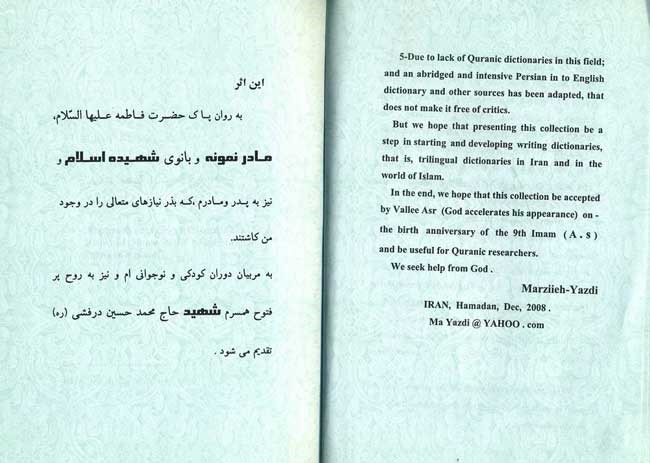 این اثر
به روان پاک حضرت فاطمه علیها السّلام،
مادر نمونه و بانوی شهیده اسلام و
نیز به پدر ومادرم ،که بذر نیازهای متعالی را در وجود
من کاشتند.
به مربیان دوران کودکی و نوجوانی ام و نیز به روح پر
فتوح همسرم شهید حاج محمد حسین درفشی (ره)
تقدیم می شود .
5-Due to lack of Quranic dictionaries in this field;
and an abridged and intensive Persian in to English
dictionary and other sources has been adapted, that
does not make it free of critics.
But we hope that presenting this collection be a
step in starting and developing writing dictionaries,
that is, trilingual dictionaries in Iran and in the
world of Islam.
In the end, we hope that this collection be accepted
by Vallee Asr (God accelerates his appearance) on -
the birth anniversary of the 9th Imam (A.s)
and be useful for Quranic researchers.
We seek help from God .
Marziieh-Yazdi
IRAN, Hamadan, Dec, 2008 .
Ma Yazdi @ YAHOO . com